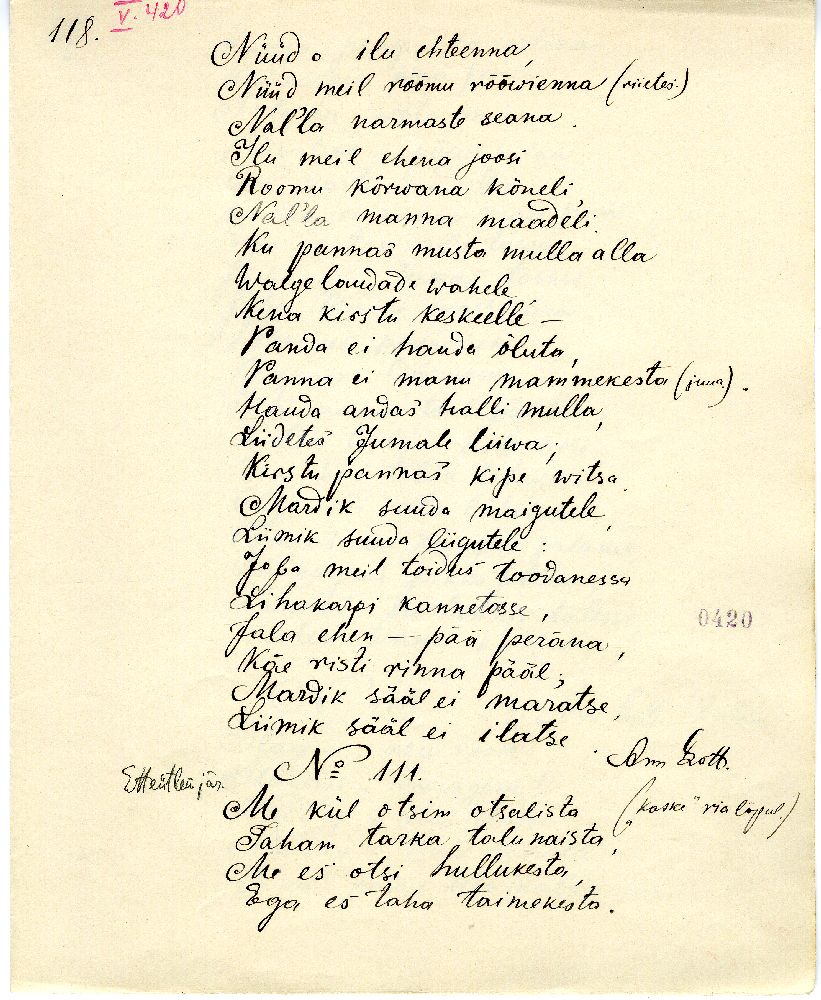 118. V. 420
Nüüd o ilu ehteenna,
Nüüd meil rõõmu rõõwienna (riietes.)
Nal'la narmaste seana.
Ilu meil ehena joosi
Roomu kõrwana kõneli,
Nal'la manna maadeli.
Ku pannas musta mulla alla
Walge laudade wahele
Kena kirstu keskeelle –
Panda ei hauda õluta,
Panna ei manu mammekesta (juua).
Hauda andas halli mulla,
Liidetes Jumale liiwa;
Kirstu pannas kipe witsa.
Mardik suuda maigutele,
Liimik suuda liigutele:
Joba meil toidus toodanessa
Lihakarpi kannetasse,
Jala ehen – pää peräna,
Käe risti rinna pääl;
Mardik sääl ei maratse,
Liimik sääl ei ilatse.
Ann
№ 111.
Me kül otsim otsalista ("kaske" ria lõpul.)
Taham tarka talunaista,
Me es otsi hullukesta,
Ega es taha taimekesta.
0420